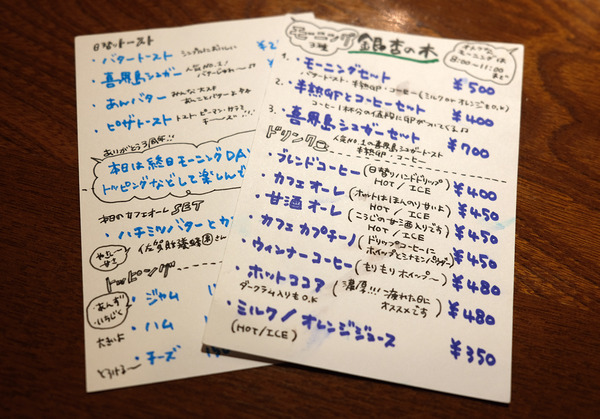 日替わりトースト
・バタートースト シンプルにおいしい
・喜界島シュガー 人気No.1!
バターじゅわ〜
・あんバター みんな大スキ
あんことバター
・ピザトースト トマト ピーマン
チーズ
ありがとう3周年!!
本日は終日モーニングDAY
トッピングなどして楽しんで
本日のカフェオーレSET
・ハチミツバターとか
やさしい甘さ
佐賀
トッピング
・ジャム
あんず
いちじく
・ハム
大きいよ
・チーズ
とろける〜
モーニング 銀杏の木
3種
オトクなモーニングは
8:00〜11:00
まで
1. モーニングセット ¥500
バタートースト・半熟卵・コーヒー(ミルク or オレンジもO.K)
2. 半熟卵とコーヒーセット ¥400
コーヒー1杯分の値段に卵がついてくる
3. 喜界島シュガーセット ¥700
人気No.1の喜界島シュガートースト
半熟卵・コーヒー
ドリンク
・ブレンドコーヒー(日替りハンドドリップ) ¥400
HOT / ICE
・カフェオーレ(ホットはほんのり甘いよ) ¥450
HOT / ICE
・甘酒オーレ(こうじの甘酒入りです) ¥450
HOT / ICE
・カフェカプチーノ(ドリップコーヒーに
ホイップとシナモンパウダー) ¥450
・ウィンナーコーヒー(もりもりホイップ〜) ¥480
・ホットココア(濃厚!!! 疲れた日に
オススメです) ¥480
ダークラム入りもO.K
・ミルク/オレンジジュース ¥350
(HOT/ICE)